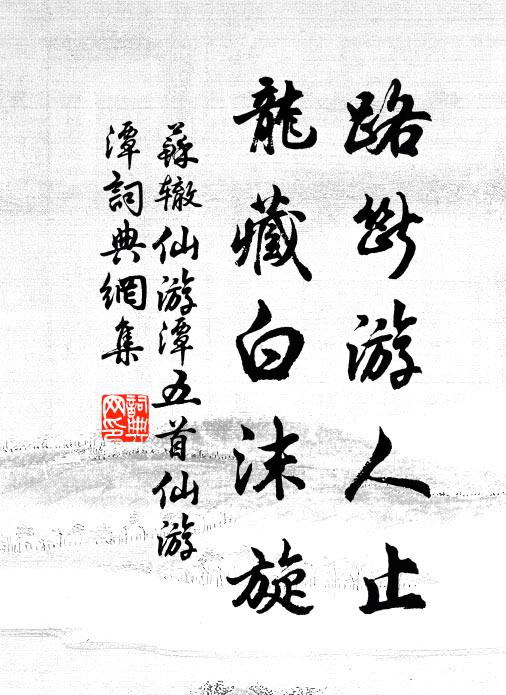 路斷游人止
龍藏白沫旋
蘇辙仙游潭五首仙游
潭詞典網集
詞典网印